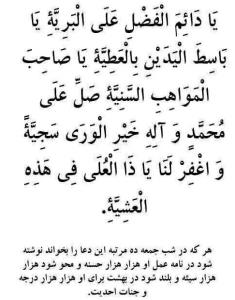 يَا دَائِمَ الْفَضْلِ عَلَى الْبَرِيَّةِ يَا
بَاسِطَ الْيَدَيْنِ بِالْعَطِيَّةِ يَا صَاحِبَ
الْمَوَاهِبِ السَّنِيَّةِ صَلِّ عَلَى
مُحَمَّدٍ وَ آلِهِ خَيْرِ الْوَرَى سَجِيَّةً
وَ اغْفِرْ لَنَا يَا ذَا الْعُلَى فِي هَذِهِ
الْعَشِيَّةِ.
هر که در شب جمعه ده مرتبه این دعا را بخواند نوشته
شود در نامه عمل او هزار هزار حسنه و محو شود هزار
هزار سیئه و بلند شود در بهشت برای او هزار هزار درجه
و جنات احدیت.